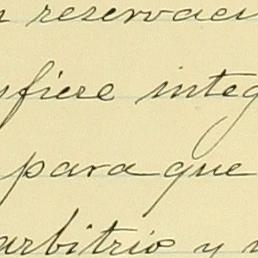 n reservaci
nfiere integ
para que
arbitrio y